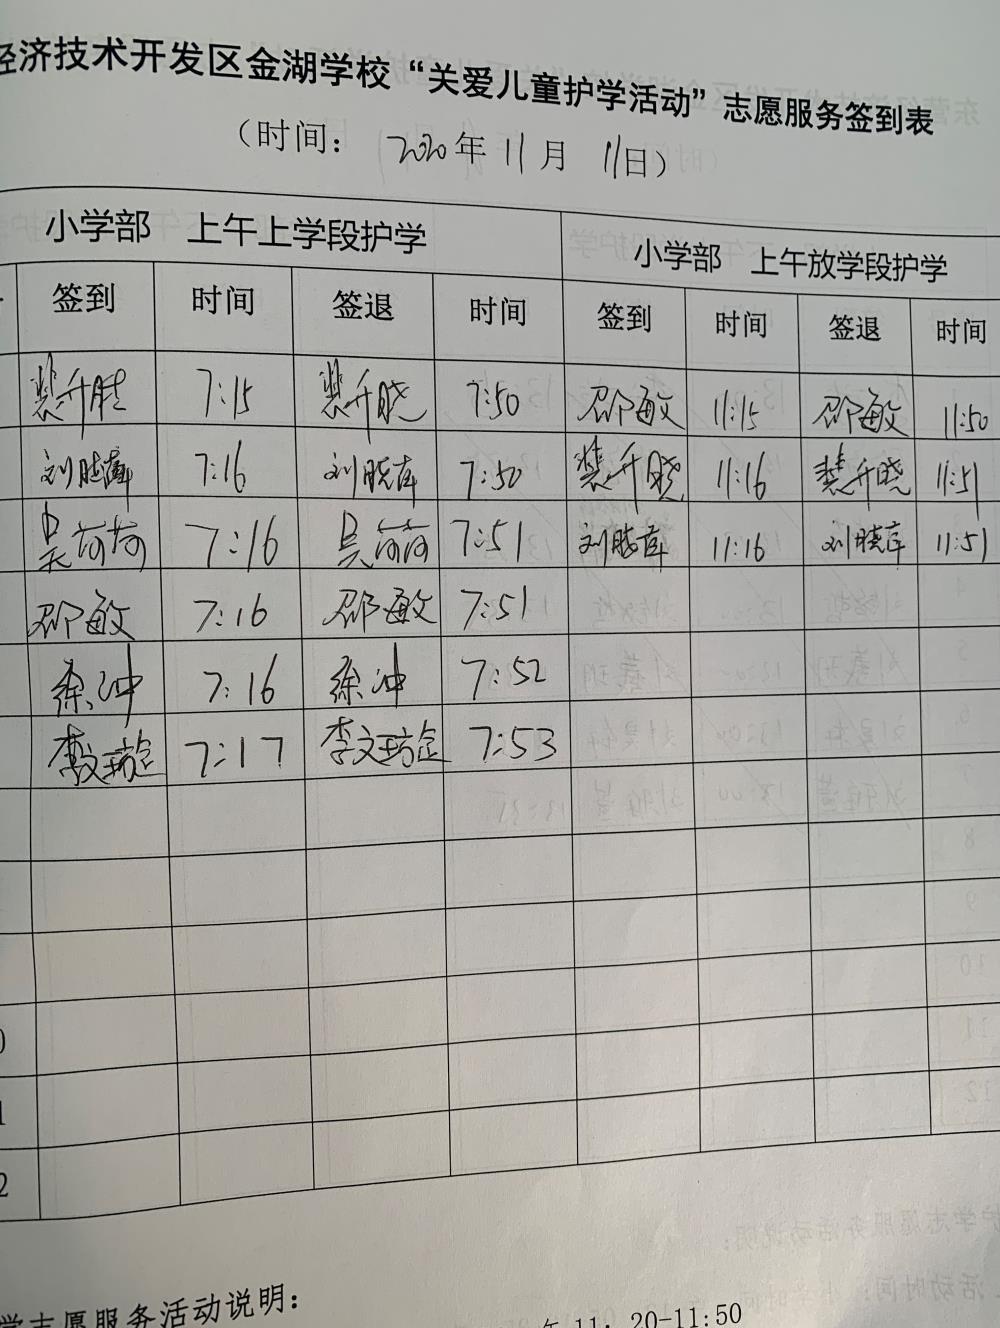 经济技术开发区金湖学校“关爱儿童护学活动”志愿服务签到表
（时间： 2020年11月 11日）
小学部 上午上学段护学 小学部 上午放学段护学
签到 时间 签退 时间 签到 时间 签退 时间
裴升胜 7:15 裴升晓 7:50 邵敏 11:15 邵敏 11:50
刘晓 7:16 刘晓 7:50 裴升晓 11:16 裴升晓 11:51
吴荷荷 7:16 吴荷荷 7:51 刘晓 11:16 刘晓 11:51
邵敏 7:16 邵敏 7:51
徐冲 7:16 徐冲 7:52
李文 7:17 李文 7:53
0
1
2
学志愿服务活动说明：
午11：20-11:50